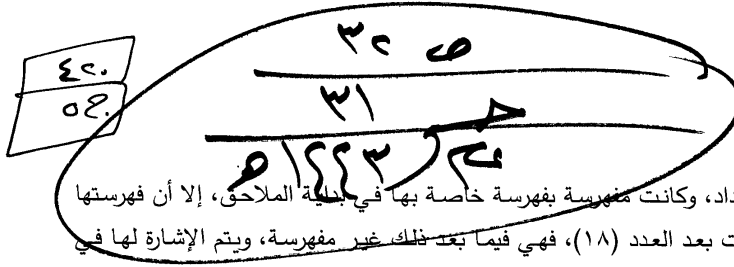 ص ٣٢
٤٢٠
ج ٣١
١٤٤٣هـ
داد، وكانت مفهرسة بفهرسة خاصة بها في بداية الملاحق، إلا أن فهرستها
ت بعد العدد (١٨)، فهي فيما بعد ذلك غير مفهرسة، ويتم الإشارة لها في